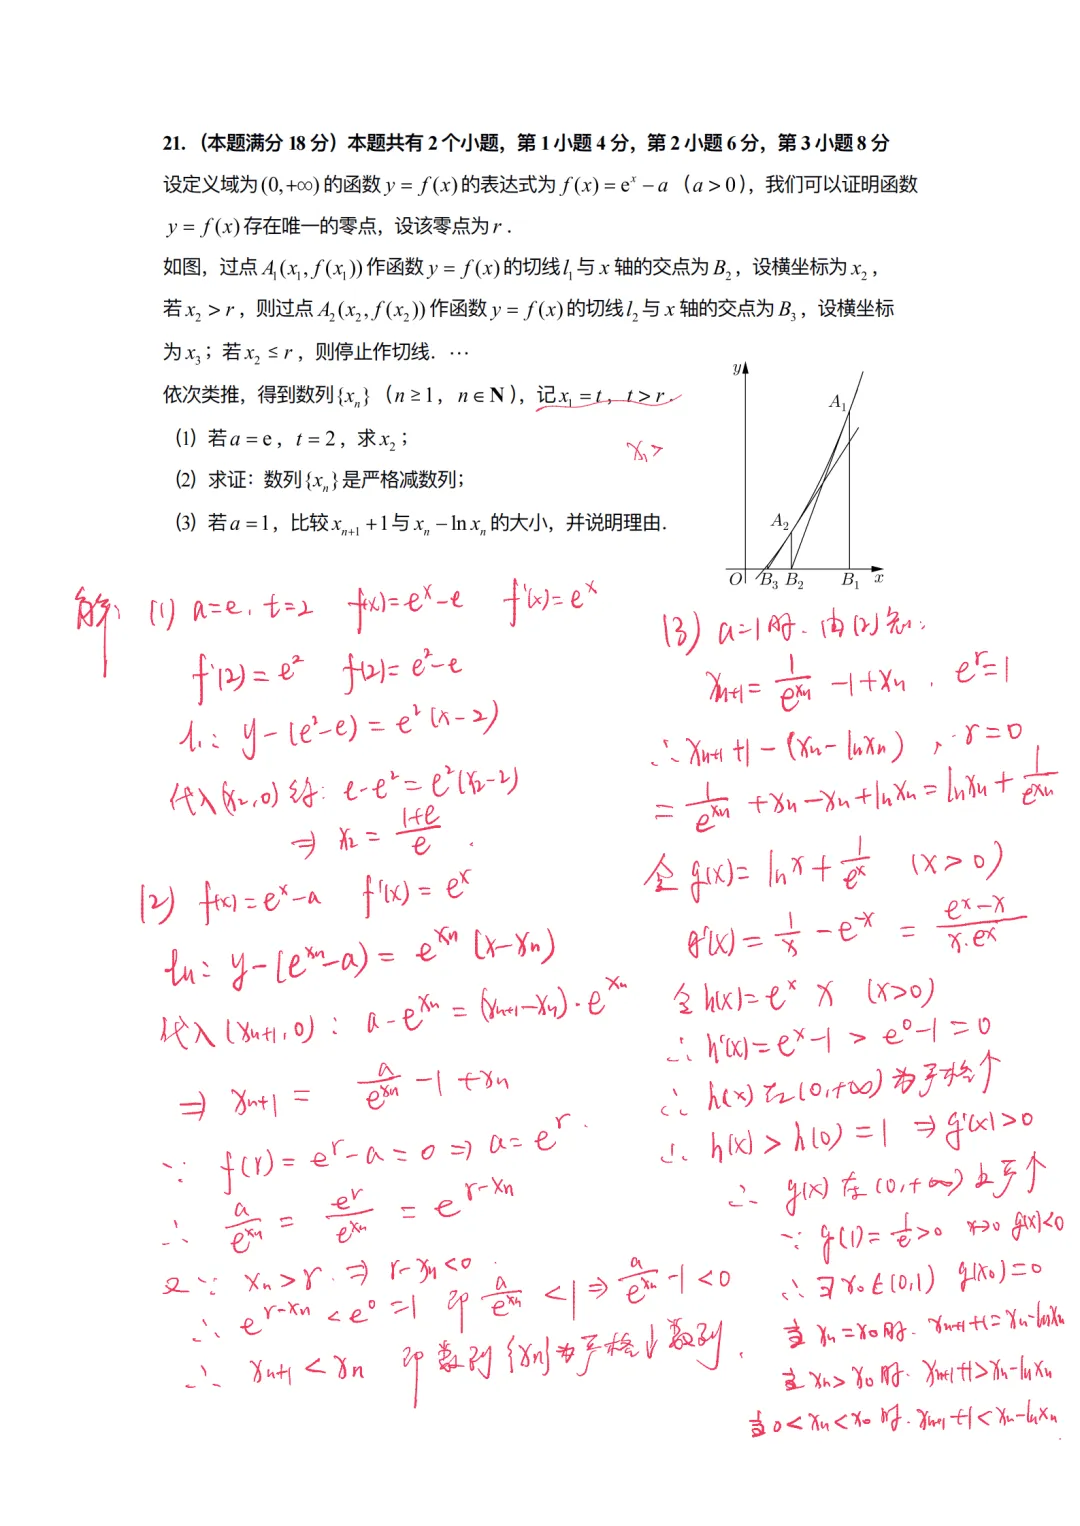 21.（本题满分 18 分）本题共有 2 个小题，第 1 小题 4 分，第 2 小题 6 分，第 3 小题 8 分
设定义域为(0,+∞)的函数 y = f(x)的表达式为 f(x) = eˣ − a（a > 0），我们可以证明函数
y = f(x)存在唯一的零点，设该零点为 r．
如图，过点 A₁(x₁, f(x₁))作函数 y = f(x)的切线 l₁与 x 轴的交点为 B₂，设横坐标为 x₂，
若 x₂ > r，则过点 A₂(x₂, f(x₂))作函数 y = f(x)的切线 l₂与 x 轴的交点为 B₃，设横坐标
为 x₃；若 x₂ ≤ r，则停止作切线．⋯
依次类推，得到数列{xₙ}（n ≥ 1，n ∈ N），记 x₁ = t，t > r．
(1) 若 a = e，t = 2，求 x₂；
(2) 求证：数列{xₙ}是严格减数列；
(3) 若 a = 1，比较 xₙ₊₁ + 1与 xₙ − ln xₙ 的大小，并说明理由．
x₁>
y
A₁
A₂
O B₃ B₂ B₁ x
解: (1) a=e, t=2 f(x)=eˣ-e f'(x)=eˣ
f'(2)=e² f(2)=e²-e
l₁: y-(e²-e)=e²(x-2)
代入(x₂,0)得: e-e²=e²(x₂-2)
⇒ x₂=(1+e)/e .
(2) f(x)=eˣ-a f'(x)=eˣ
lₙ: y-(e^xₙ-a)=e^xₙ(x-xₙ)
代入(xₙ₊₁,0): a-e^xₙ=(xₙ₊₁-xₙ)·e^xₙ
⇒ xₙ₊₁ = a/e^xₙ -1+xₙ
∵ f(r)=eʳ-a=0 ⇒ a=eʳ.
∴ a/e^xₙ = eʳ/e^xₙ = e^(r-xₙ)
又∵ xₙ>r. ⇒ r-xₙ<0.
∴ e^(r-xₙ)<e⁰=1 即 a/e^xₙ <1 ⇒ a/e^xₙ -1<0
∴ xₙ₊₁<xₙ 即数列{xₙ}为严格↓数列.
(3) a=1时. 由(2)知:
xₙ₊₁= 1/e^xₙ -1+xₙ . eʳ=1
∴ xₙ₊₁+1-(xₙ-lnxₙ) , r=0
= 1/e^xₙ +xₙ-xₙ+lnxₙ = lnxₙ+ 1/e^xₙ
令 g(x)=lnx+ 1/eˣ (x>0)
g'(x)= 1/x -e⁻ˣ = (eˣ-x)/(x·eˣ)
令 h(x)=eˣ x (x>0)
∴ h'(x)=eˣ-1 > e⁰-1=0
∴ h(x)在(0,+∞)为严格↑
∴ h(x)>h(0)=1 ⇒ g'(x)>0
∴ g(x)在(0,+∞)上严↑
∵ g(1)= 1/e >0 x→0 g(x)<0
∴ ∃x₀∈(0,1) g(x₀)=0
当 xₙ=x₀时. xₙ₊₁+1=xₙ-lnxₙ
当 xₙ>x₀时. xₙ₊₁+1>xₙ-lnxₙ
当 0<xₙ<x₀时. xₙ₊₁+1<xₙ-lnxₙ